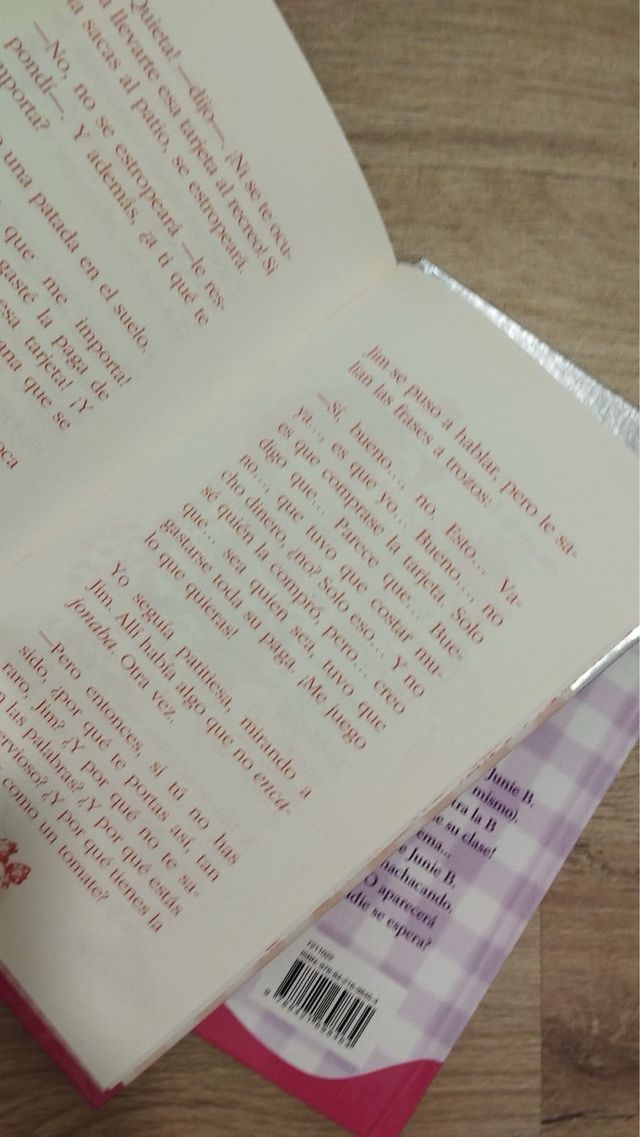 Quieta! —dijo—. ¡Ni se te ocu-
llevarte esa tarjeta al recreo! Si
la sacas al patio, se estropeará.
—No, no se estropeará —le res-
pondí—. Y además, ¿a ti qué te
una patada en el suelo.
que me importa!
gasté la paga de
esa tarjeta! ¡Y
que se
Jim se puso a hablar, pero le sa-
lían las frases a trozos:
—Sí, bueno…, no. Esto… Va-
ya…, es que yo… Bueno…, no
es que comprase la tarjeta. Solo
digo que… parece que… Bue-
no…, que tuvo que costar mu-
cho dinero, ¿no? Solo eso… Y no
sé quién la compró, pero… creo
que… sea quien sea, tuvo que
gastarse toda su paga. ¡Me juego
lo que quieras!
Yo seguía patitiesa, mirando a
Jim. Allí había algo que no enca-
jonaba. Otra vez.
—Pero entonces, si tú no has
sido, ¿por qué te portas así, tan
raro, Jim? ¿Y por qué no te sa-
las palabras? ¿Y por qué estás
¿Y por qué tienes la
como un tomate?
Junie B.
mismo).
la B
e su clase!
e Junie B.
O aparecerá
se espera?
7211022